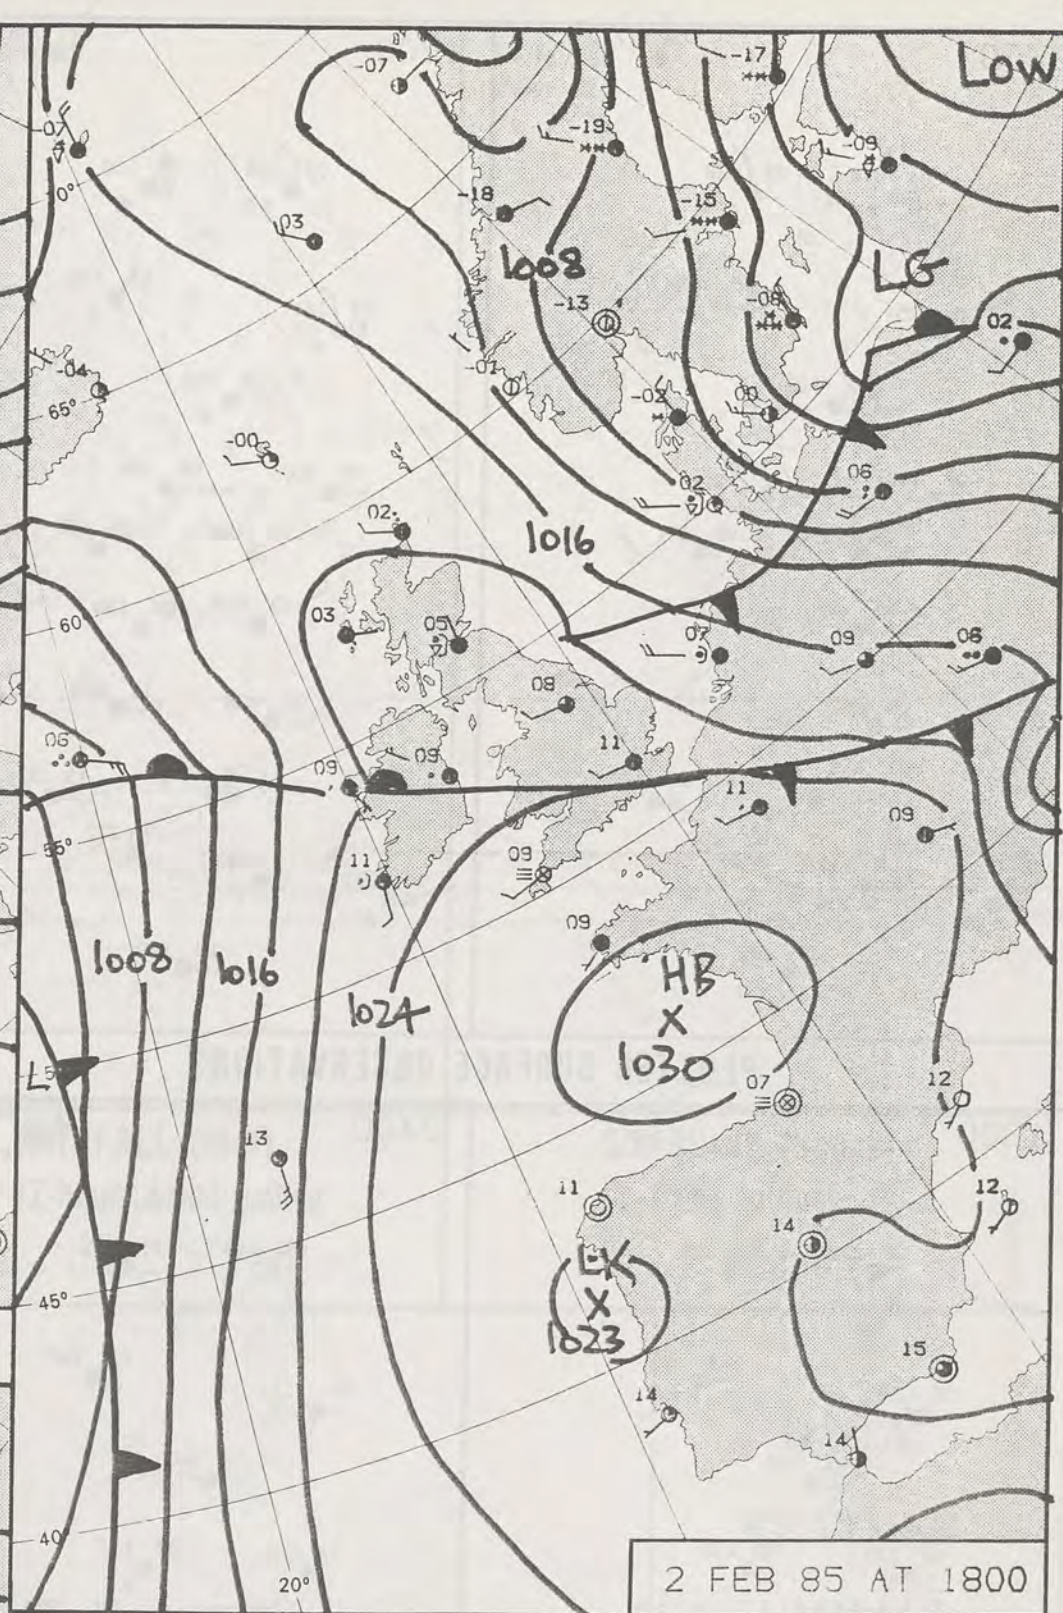 LOW
-17
-07
-19
-07
-09
70°
-18
-15
03
1008
LG
-13
-08
02
-01
-04
-02
00
65°
-00
06
02
02
1016
03
05
07
09
08
60
08
06
11
09
09
11
09
55°
11
09
09
1008
1016
HB
1024
X
1030
L
50
07
12
13
11
12
14
LK
45°
X
1023
15
14
14
40°
20°
2 FEB 85 AT 1800